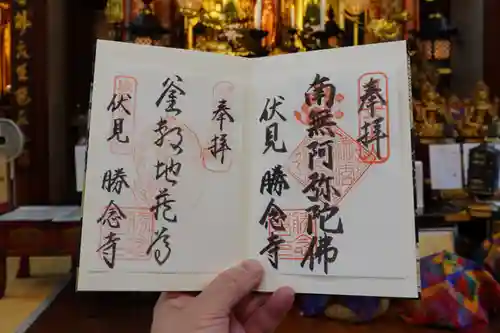 奉拝
南無阿弥陀佛
伏見 勝念寺
奉拝
釜敷地蔵尊
伏見 勝念寺